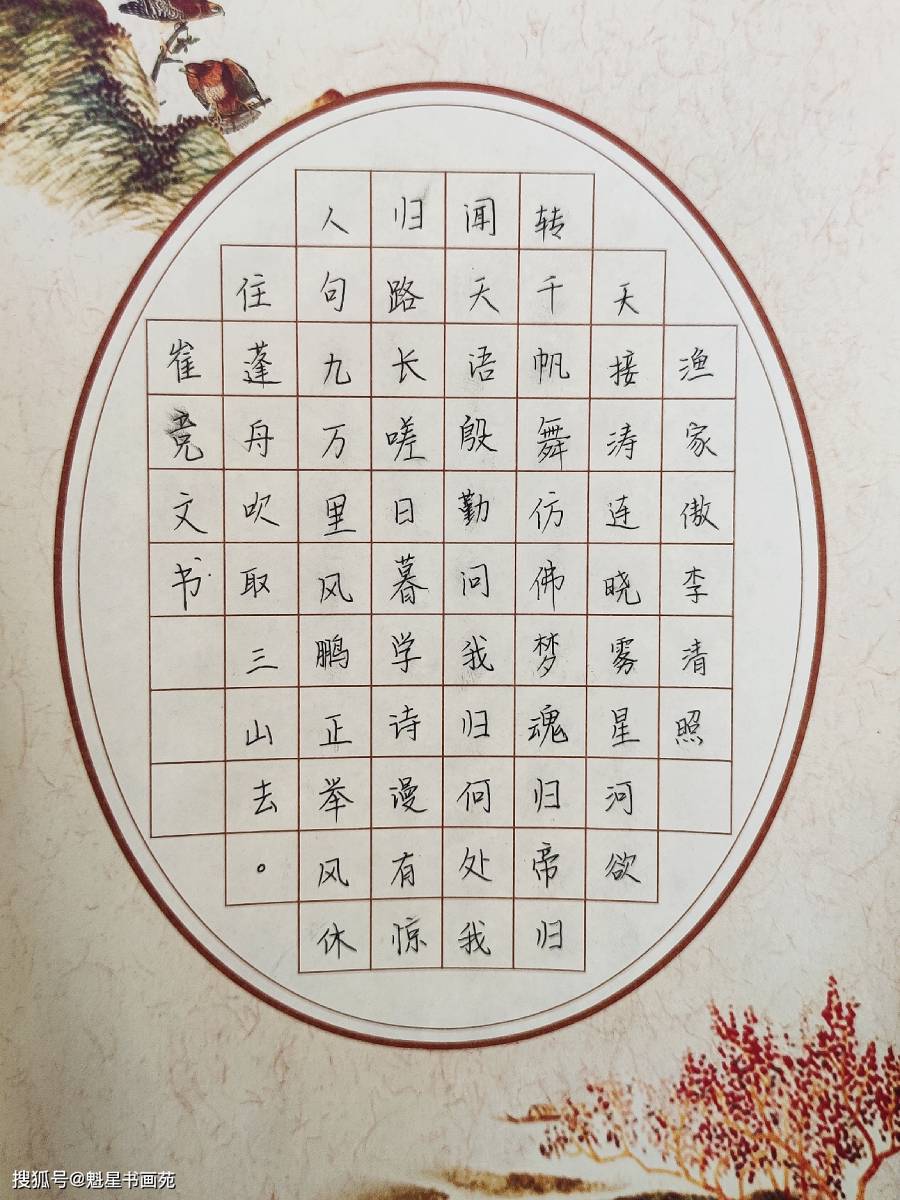 渔家傲李清照
天接涛连晓雾星河欲
转千帆舞仿佛梦魂归帝归
闻天语殷勤问我归何处我
归路长嗟日暮学诗漫有惊
人句九万里风鹏正举风休
住蓬舟吹取三山去。
崔竞文书
搜狐号@魁星书画苑